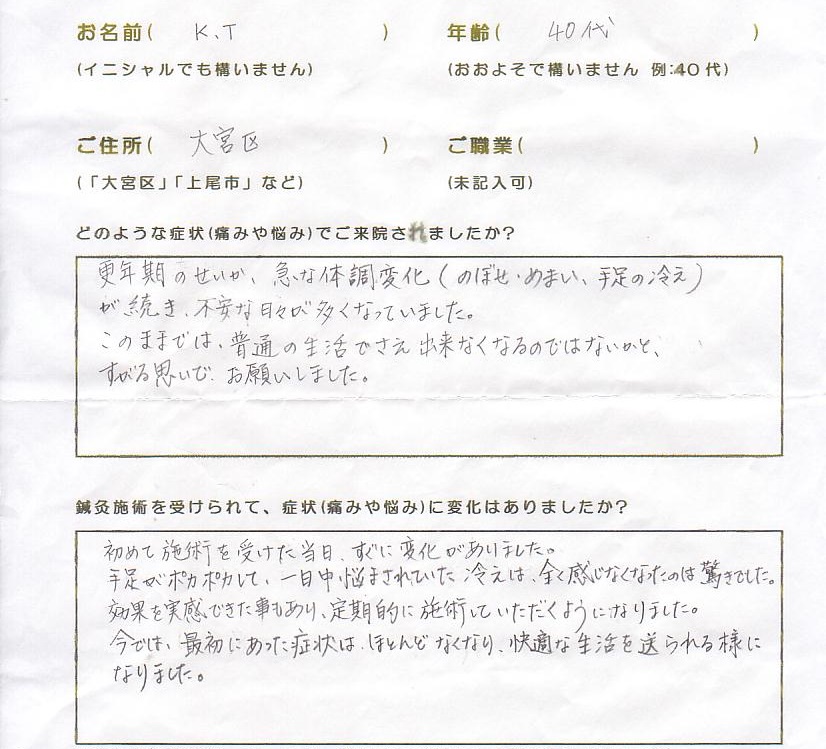 お名前( K.T ) 年齢( 40代 )
(イニシャルでも構いません) (おおよそで構いません 例:40代)
ご住所( 大宮区 ) ご職業( )
(「大宮区」「上尾市」など) (未記入可)
どのような症状(痛みや悩み)でご来院されましたか?
更年期のせいか、急な体調変化(のぼせ・めまい、手足の冷え)
が続き、不安な日々が多くなっていました。
このままでは、普通の生活でさえ出来なくなるのではないかと、
すがる思いで、お願いしました。
鍼灸施術を受けられて、症状(痛みや悩み)に変化はありましたか?
初めて施術を受けた当日、すぐに変化がありました。
手足がポカポカして、一日中悩まされていた冷えは、全く感じなくなったのは驚きでした。
効果を実感できた事もあり、定期的に施術していただくようになりました。
今では、最初にあった症状は、ほとんどなくなり、快適な生活を送られる様に
なりました。